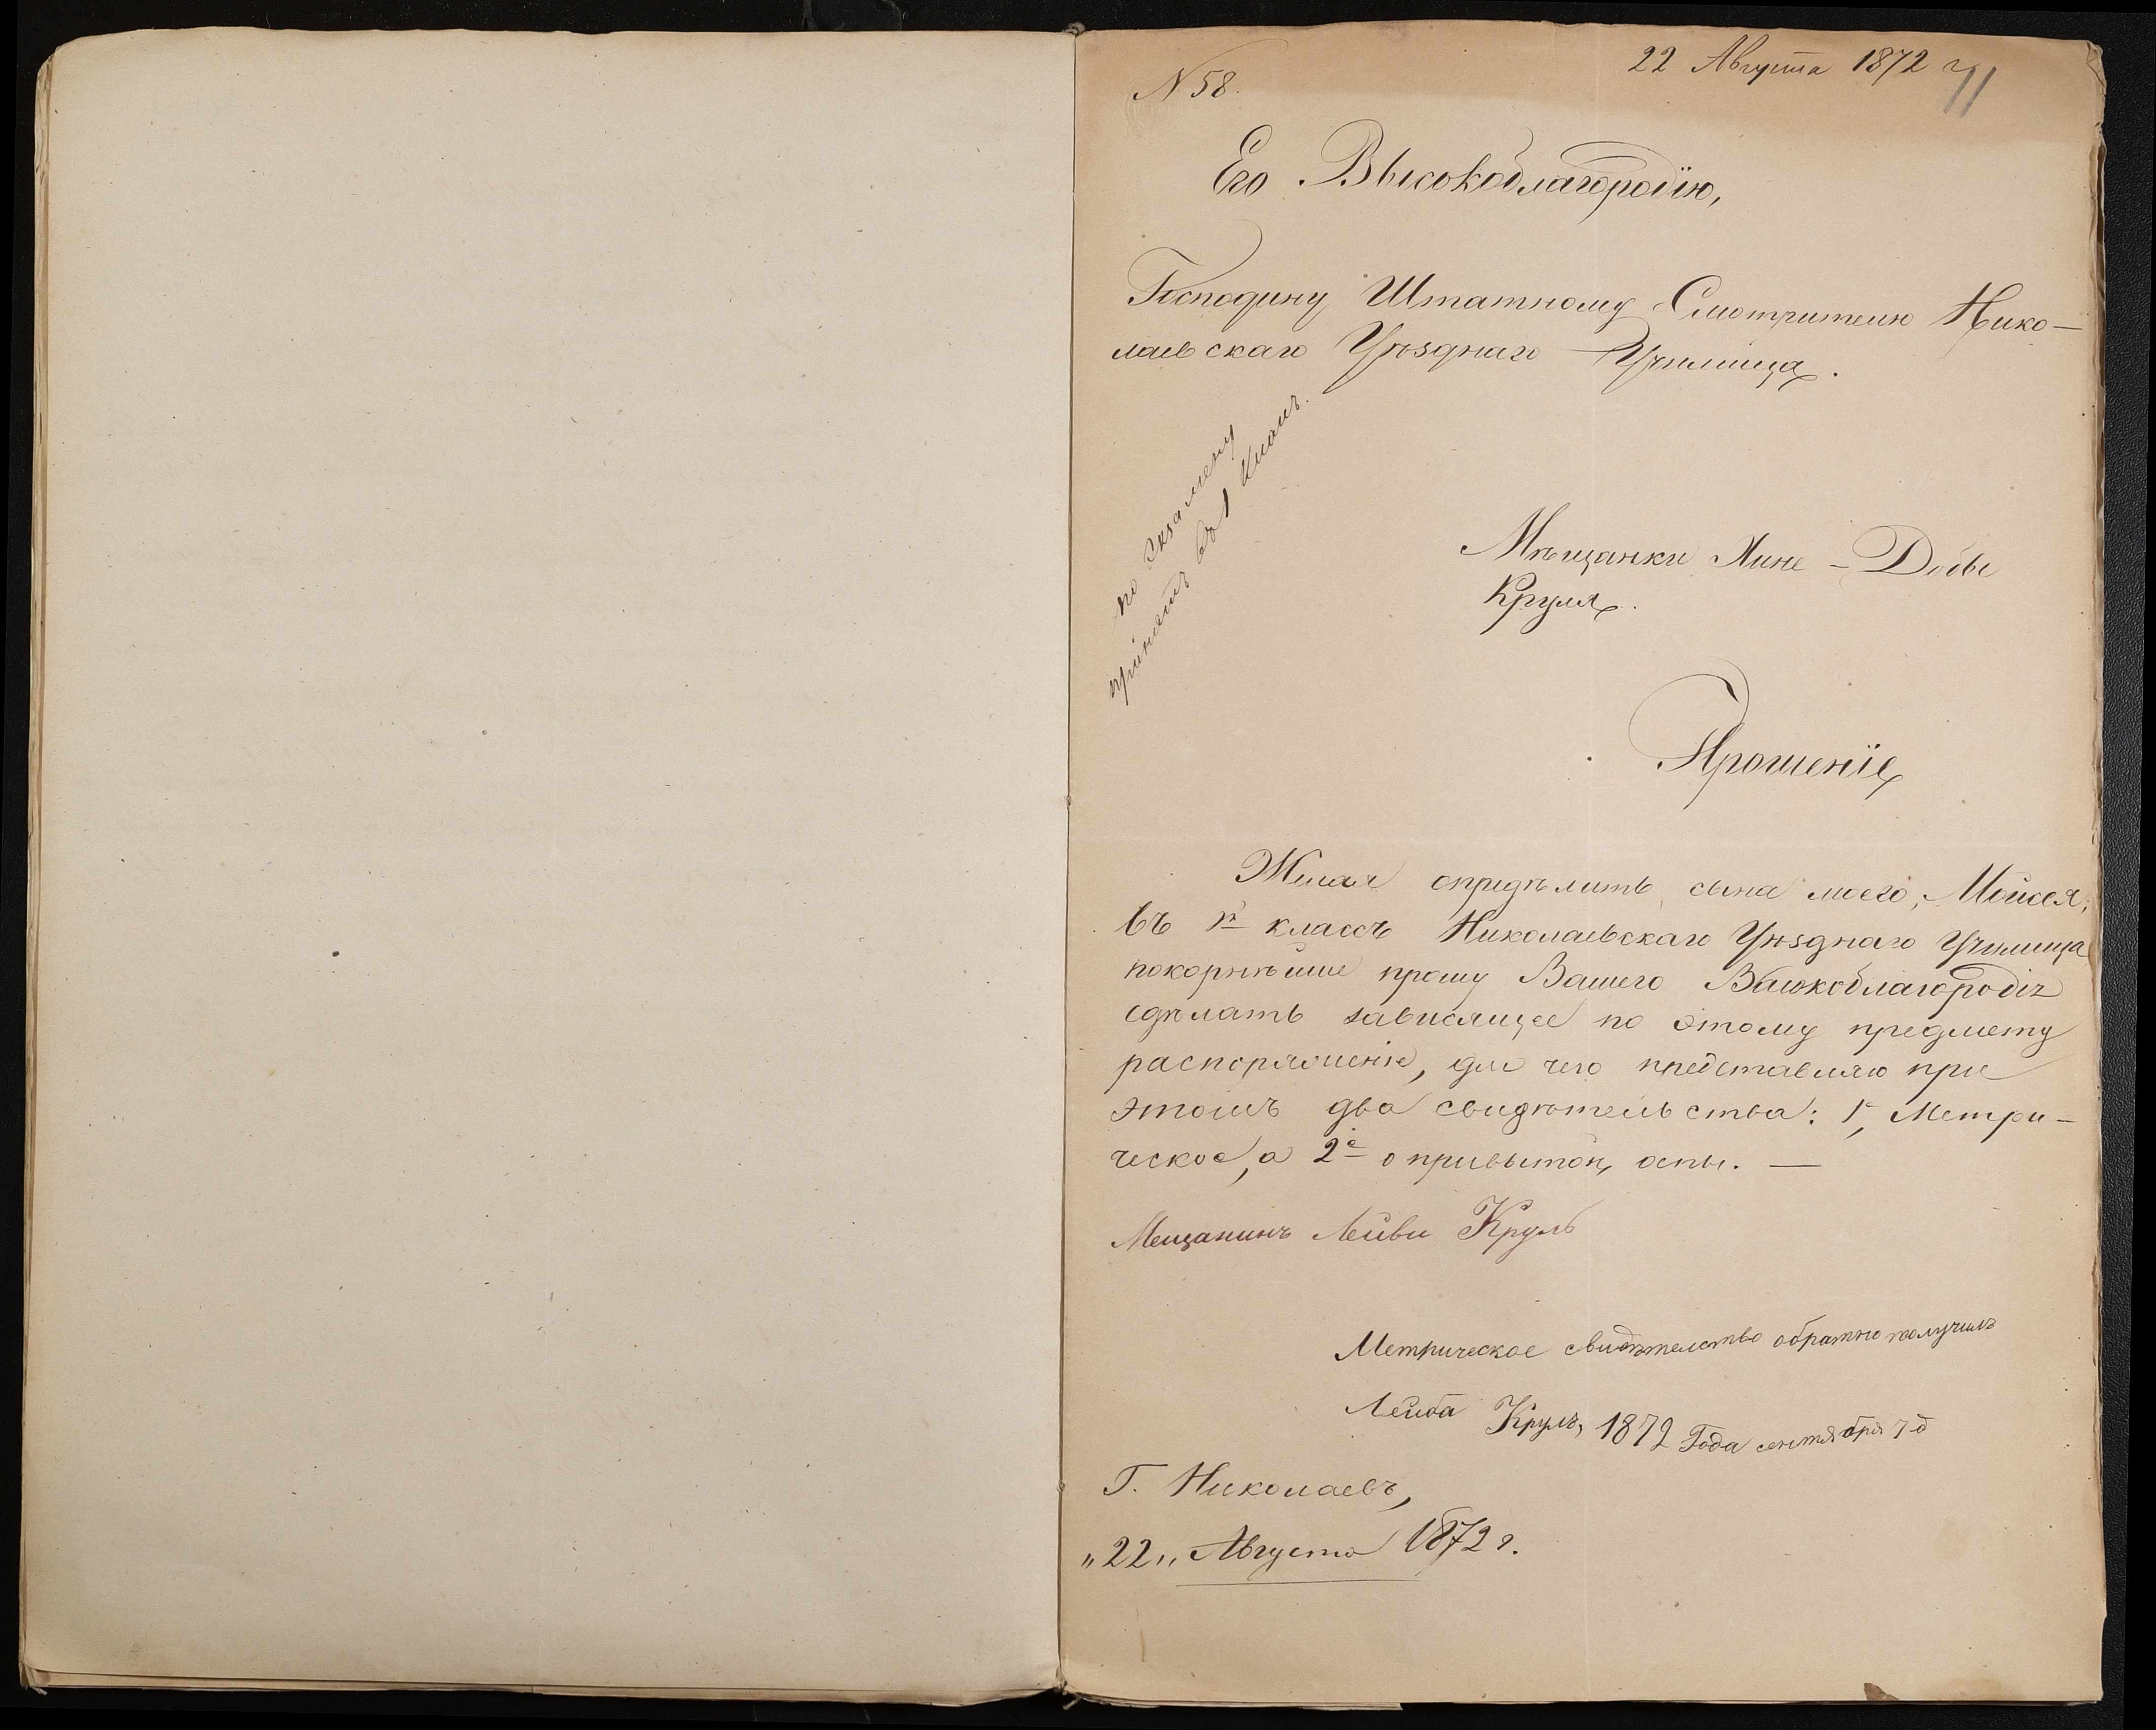 N 58.
22 Августа 1872 г.
11
Его Высокоблагородію,
Господину Штатному Смотрителю Нико-
лаевскаго Уѣзднаго Училища.
по экзамену
принятъ въ 1 классъ.
Мѣщанки Лине-Добы
Круля.
Прошеніе
Желая опредѣлить сына моего, Мойсея,
въ 1й классъ Николаевскаго Уѣзднаго Училища
покорнѣйше прошу Вашего Высокоблагородія
сдѣлать зависящее по этому предмету
распоряженіе, для чего представляю при
этомъ два свидѣтельства: 1е, Метри-
ческое, а 2е о привытой оспы. —
Мещанинъ Лейви Круль
Метрическое свидѣтелство обратно получилъ
Лейба Круль, 1872 Года сентября 7 д
Г. Николаевъ,
„22„ Августа 1872 г.